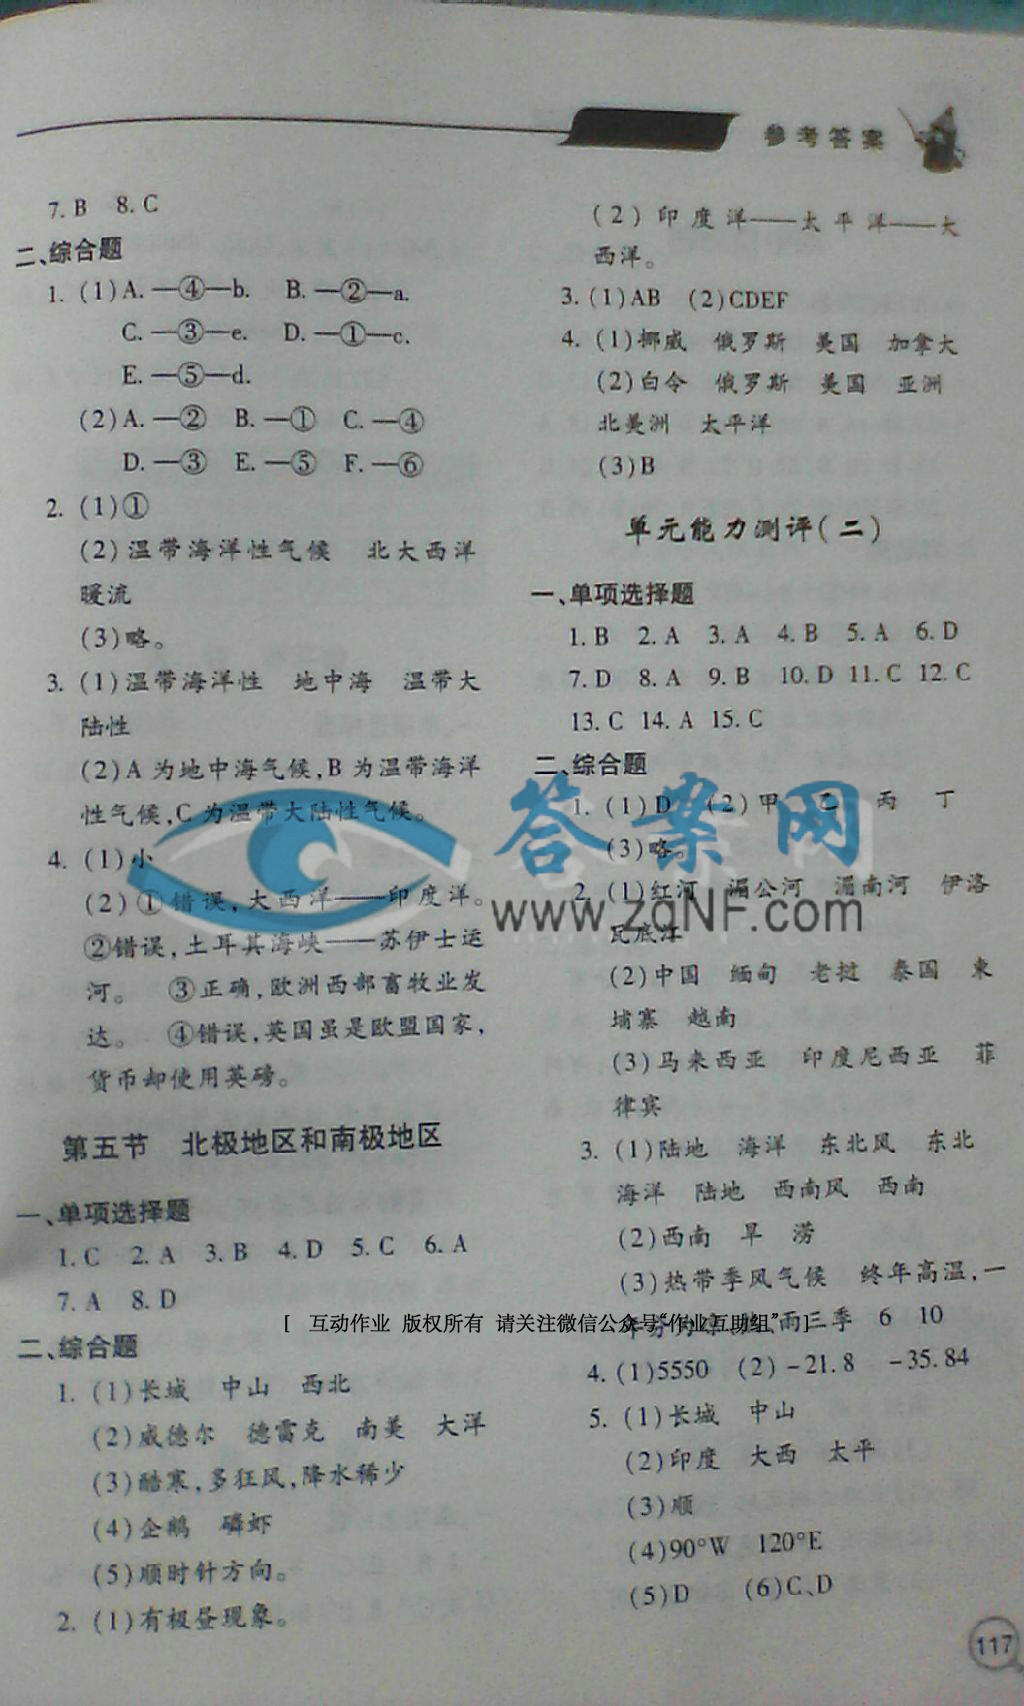 参考答案
7. B 8. C
二、综合题
1. (1)A.—④—b. B.—②—a.
C.—③—e. D.—①—c.
E.—⑤—d.
(2)A.—② B.—① C.—④
D.—③ E.—⑤ F.—⑥
2. (1)①
(2)温带海洋性气候 北大西洋
暖流
(3)略。
3. (1)温带海洋性 地中海 温带大
陆性
(2)A为地中海气候,B为温带海洋
性气候,C为温带大陆性气候。
4. (1)小
(2)①错误,大西洋——印度洋。
②错误,土耳其海峡——苏伊士运
河。 ③正确,欧洲西部畜牧业发
达。 ④错误,英国虽是欧盟国家,
货币却使用英磅。
第五节 北极地区和南极地区
一、单项选择题
1. C 2. A 3. B 4. D 5. C 6. A
7. A 8. D
二、综合题
1. (1)长城 中山 西北
(2)威德尔 德雷克 南美 大洋
(3)酷寒,多狂风,降水稀少
(4)企鹅 磷虾
(5)顺时针方向。
2. (1)有极昼现象。
(2)印度洋——太平洋——大
西洋。
3. (1)AB (2)CDEF
4. (1)挪威 俄罗斯 美国 加拿大
(2)白令 俄罗斯 美国 亚洲
北美洲 太平洋
(3)B
单元能力测评(二)
一、单项选择题
1. B 2. A 3. A 4. B 5. A 6. D
7. D 8. A 9. B 10. D 11. C 12. C
13. C 14. A 15. C
二、综合题
1. (1)D (2)甲 乙 丙 丁
(3)略。
2. (1)红河 湄公河 湄南河 伊洛
瓦底江
(2)中国 缅甸 老挝 泰国 柬
埔寨 越南
(3)马来西亚 印度尼西亚 菲
律宾
3. (1)陆地 海洋 东北风 东北
海洋 陆地 西南风 西南
(2)西南 旱 涝
(3)热带季风气候 终年高温,一
雨三季 6 10
4. (1)5550 (2)-21.8 -35.84
5. (1)长城 中山
(2)印度 大西 太平
(3)顺
(4)90°W 120°E
(5)D (6)C、D
117
答案网
www.zqNF.com
[ 互动作业 版权所有 请关注微信公众号“作业互助组” ]